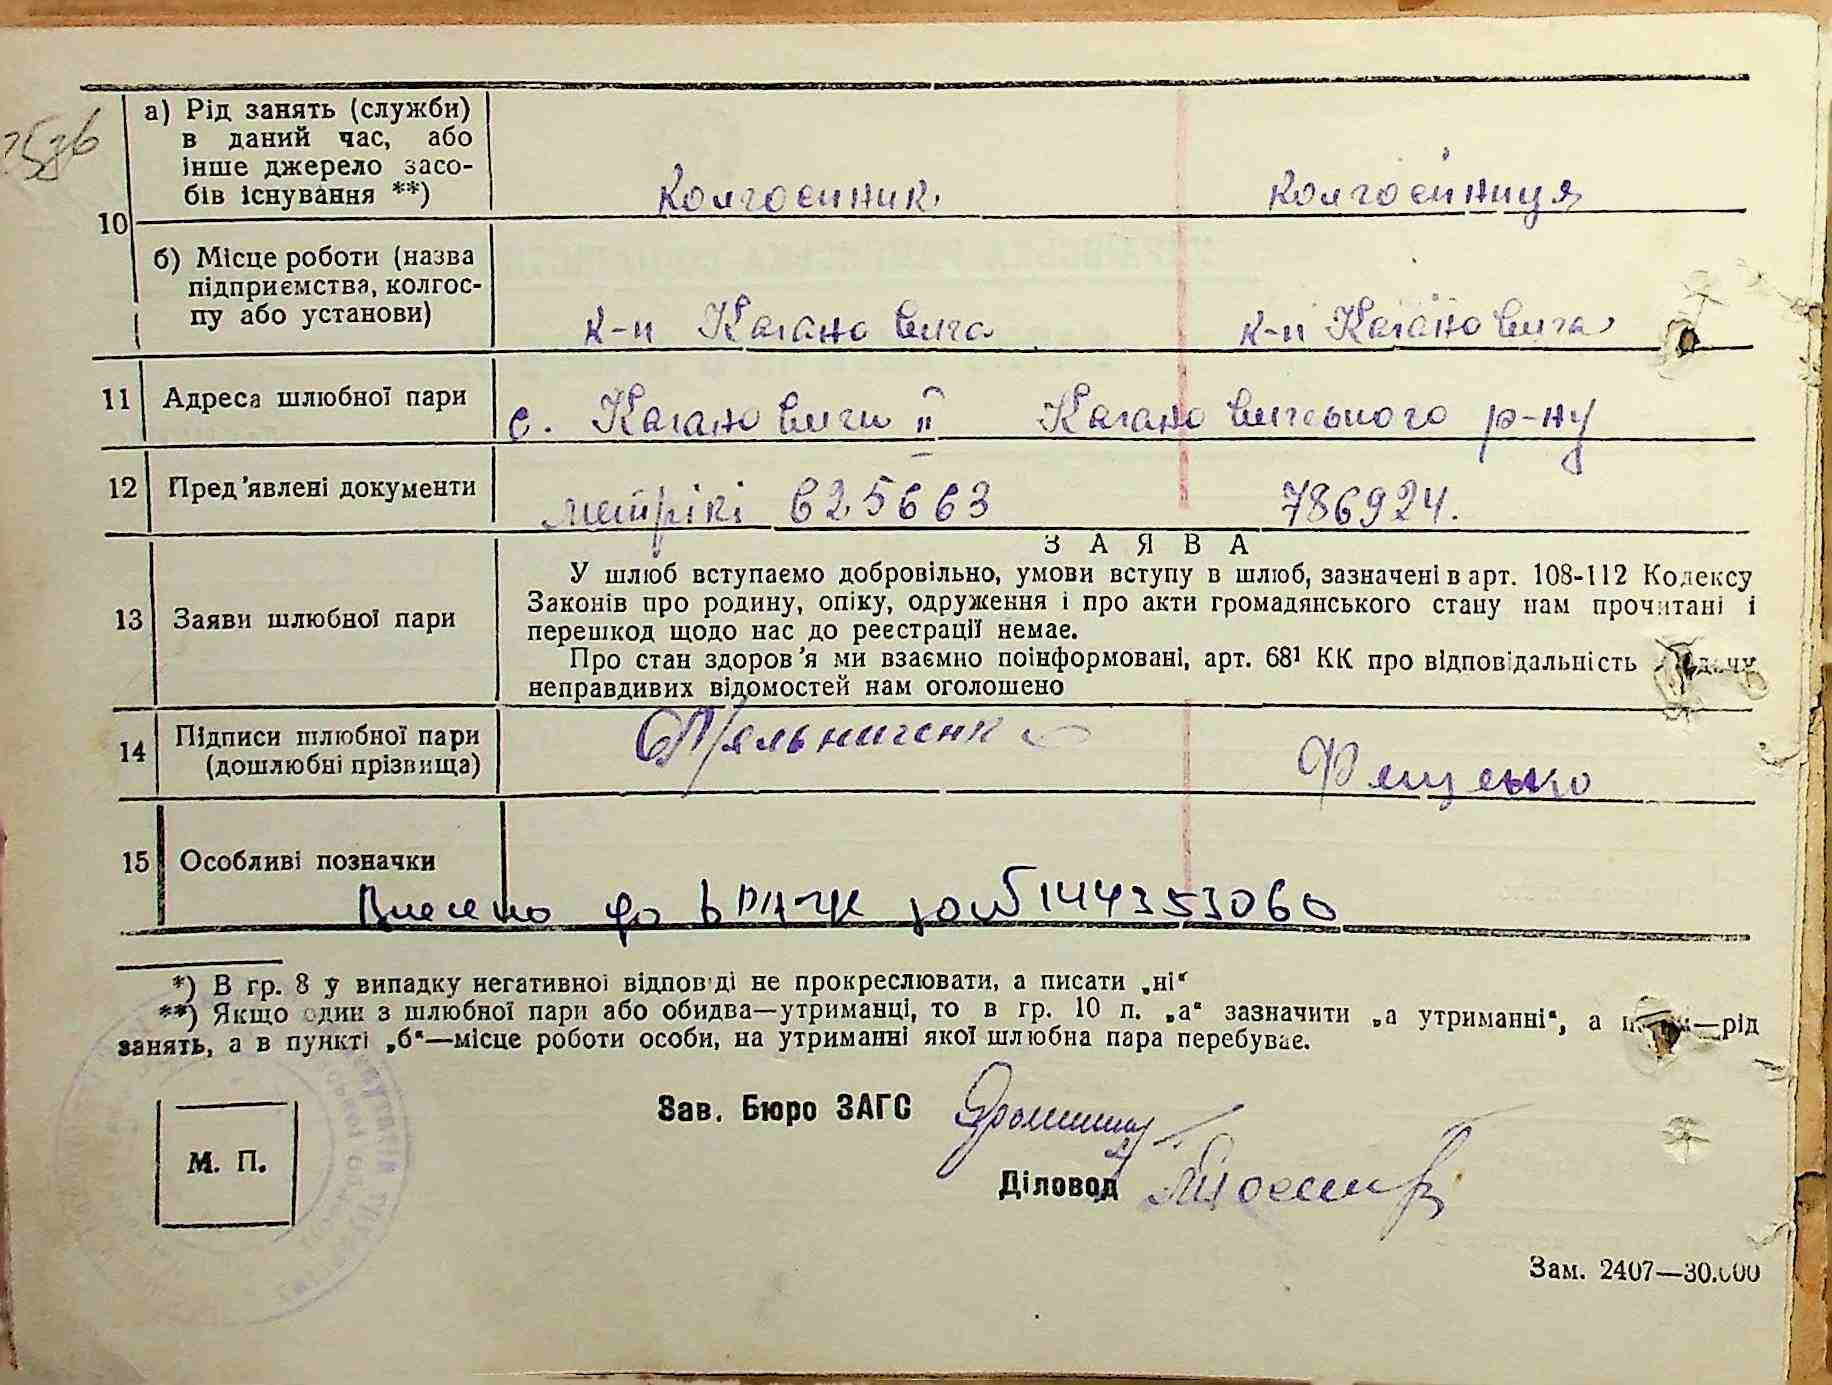 а) Рід занять (служби)
в даний час, або
інше джерело засо-
бів існування **)
колгоспник колгоспниця
10
б) Місце роботи (назва
підприємства, колгос-
пу або установи)
к-п Кагановича к-п Кагановича
11 Адреса шлюбної пари
с. Кагановичи II Кагановичського р-ну
12 Пред'явлені документи
метрікі 625663 786924.
ЗАЯВА
У шлюб вступаємо добровільно, умови вступу в шлюб, зазначені в арт. 108-112 Кодексу
Законів про родину, опіку, одруження і про акти громадянського стану нам прочитані і
перешкод щодо нас до реєстрації немає.
13 Заяви шлюбної пари
Про стан здоров'я ми взаємно поінформовані, арт. 68¹ КК про відповідальність
неправдивих відомостей нам оголошено
14 Підписи шлюбної пари
(дошлюбні прізвища)
Мельниченко
Фещенко
15 Особливі позначки
Внесено до ДРАЦС за № 144353060
*) В гр. 8 у випадку негативної відповіді не прокреслювати, а писати „ні“
**) Якщо один з шлюбної пари або обидва—утриманці, то в гр. 10 п. „а“ зазначити „а утриманні“, а рід
занять, а в пункті „б“—місце роботи особи, на утриманні якої шлюбна пара перебуває.
Зав. Бюро ЗАГС
М. П.
Діловод
Зам. 2407—30.000